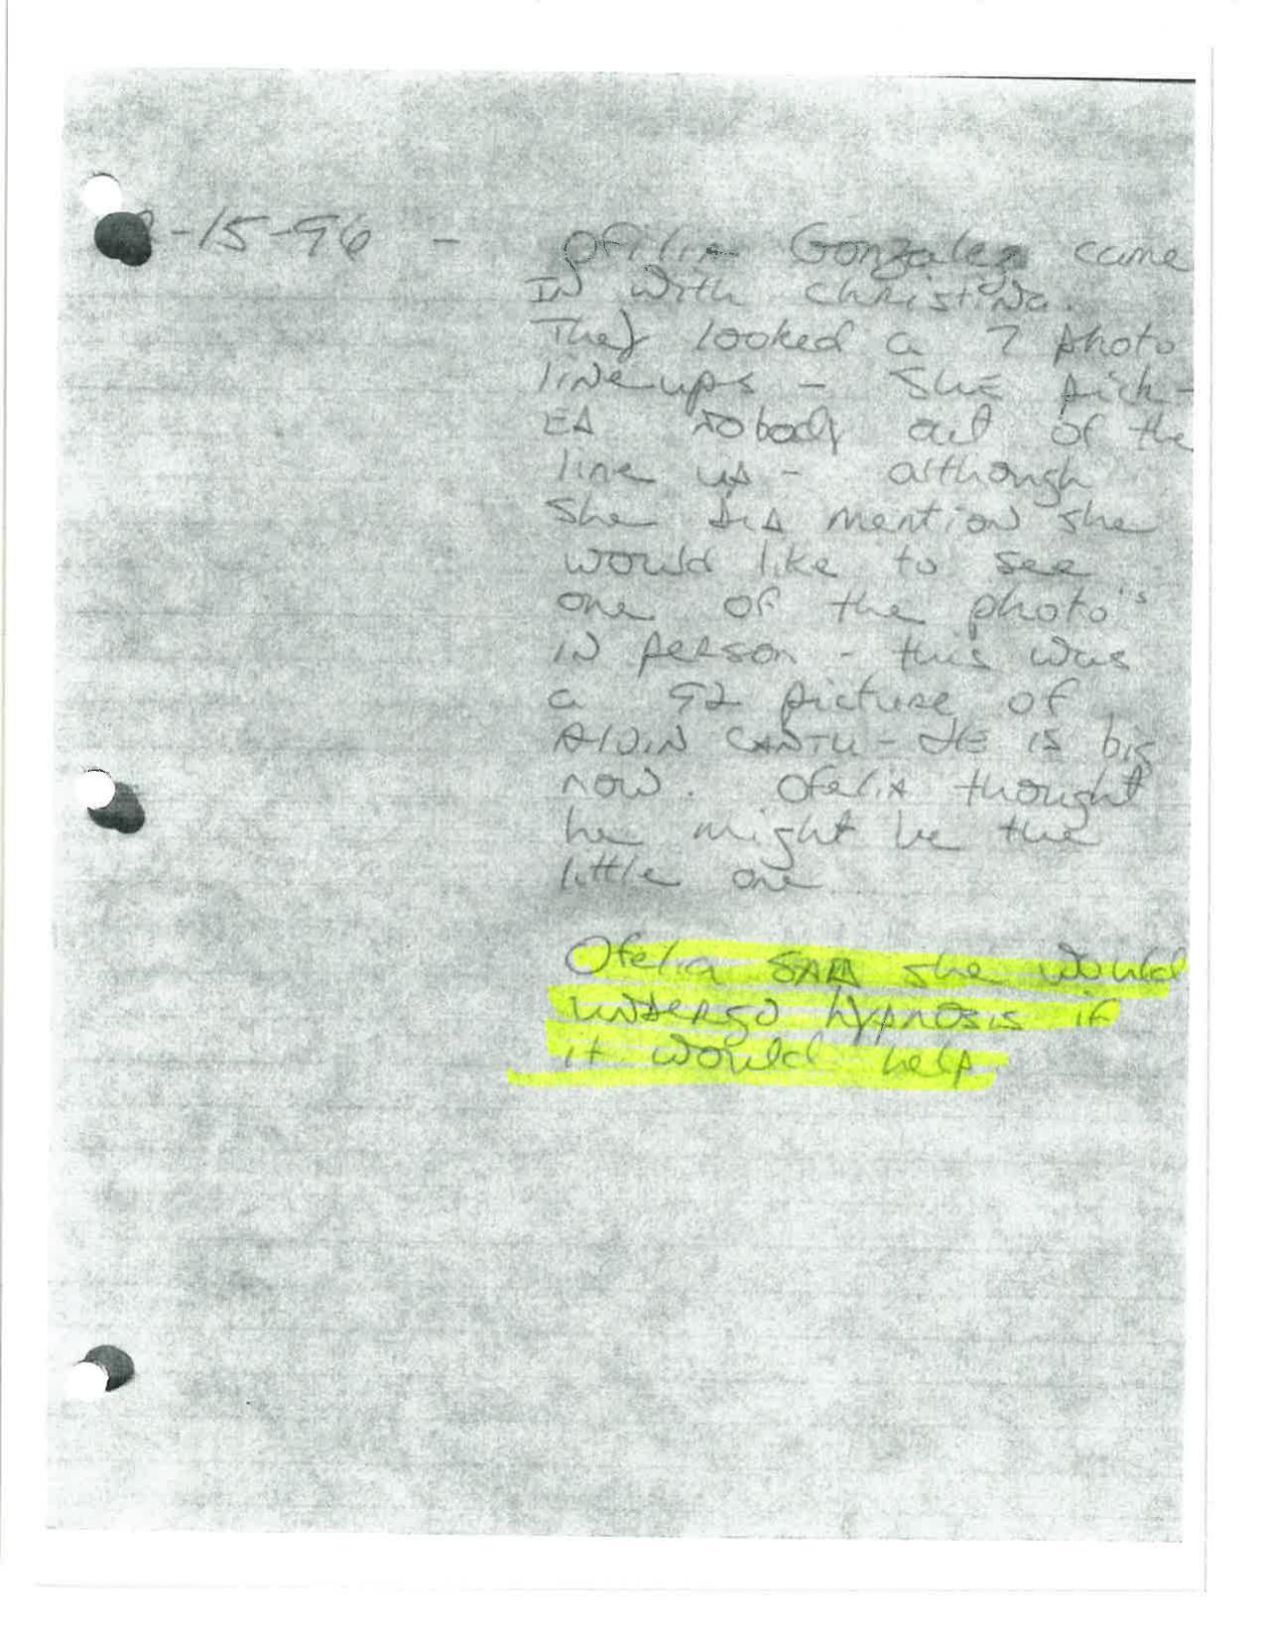 2-15-96 - Ofilia Gonzalez came
IN with christiNa.
They looked a 7 photo
line ups - She pick-
Ed Nobody out of the
line up - although
She did mention she
would like to see
one of the photo's
IN person - this was
a 92 picture of
CANTU - HE is big
now. Ofelia thought
he might be the
little one
Ofelia SAID she would
UNDERGO hypnosis if
it would help